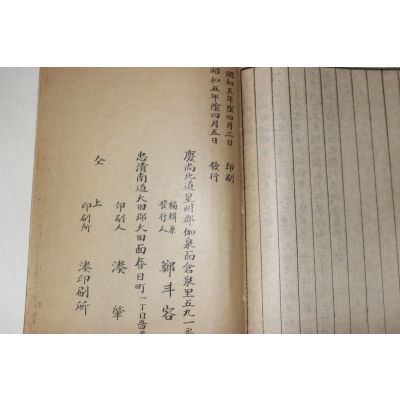 昭和五年陰四月三日 印刷
昭和五年陰四月五日 發行
慶尚北道星州郡伽泉面倉泉里五九一
編輯兼
發行人 鄭斗容
忠清南道大田郡大田面春日町一丁目
印刷人 湊肇
仝上
印刷所 湊印刷所